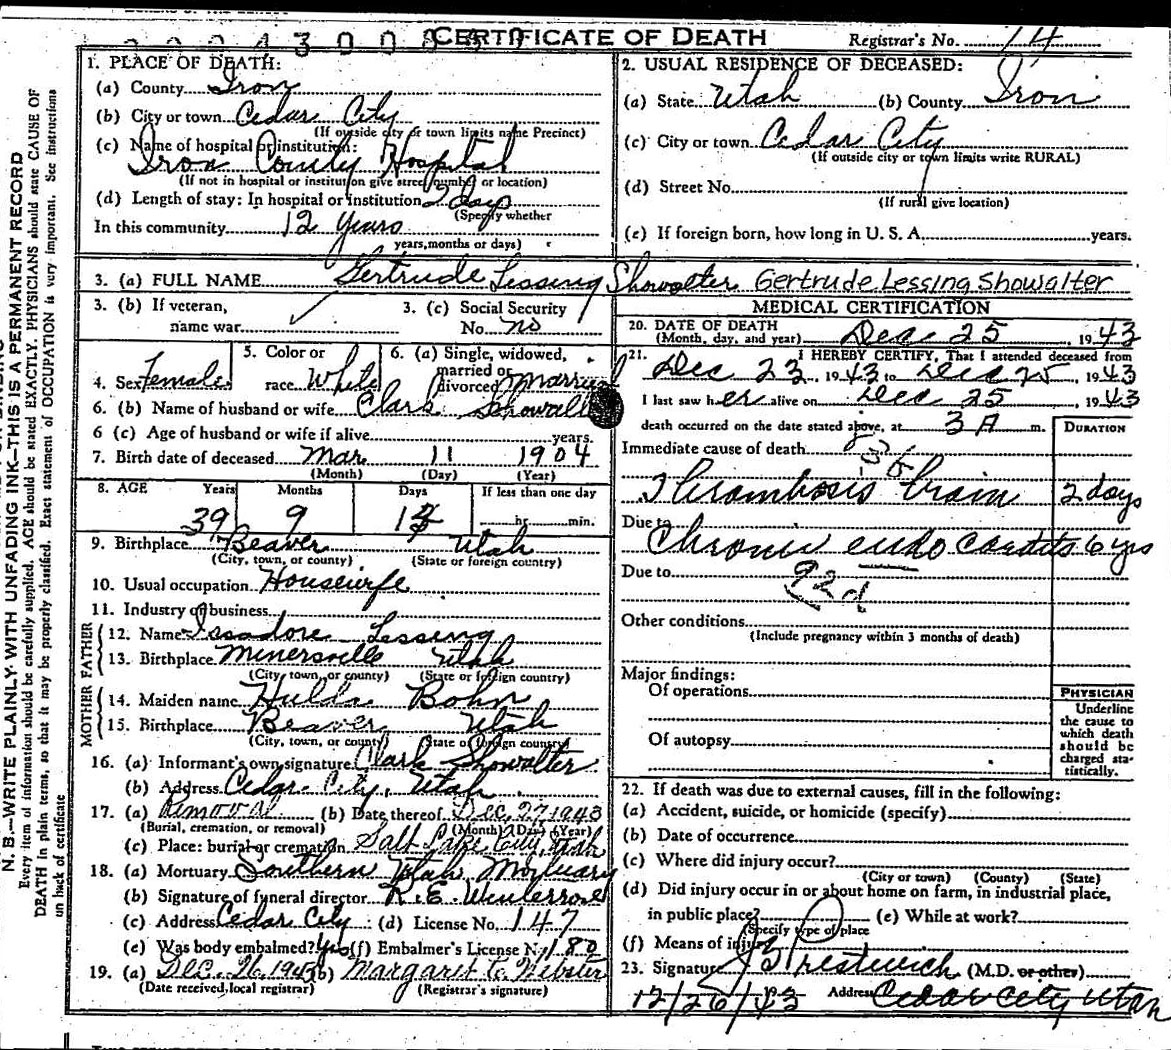 CERTIFICATE OF DEATH
Registrar's No. 14
N. B.—WRITE PLAINLY WITH UNFADING INK—THIS IS A PERMANENT RECORD
Every item of information should be carefully supplied. AGE should be stated EXACTLY. PHYSICIANS should state CAUSE OF
DEATH in plain terms, so that it may be properly classified. Exact statement of OCCUPATION is very important. See instructions
on back of certificate
1. PLACE OF DEATH:
(a) County Iron
(b) City or town Cedar City
(If outside city or town limits name Precinct)
(c) Name of hospital or institution:
Iron County Hospital
(If not in hospital or institution give street number or location)
(d) Length of stay: In hospital or institution 2 days
(Specify whether
In this community 12 years
years, months or days)
2. USUAL RESIDENCE OF DECEASED:
(a) State Utah (b) County Iron
(c) City or town Cedar City
(If outside city or town limits write RURAL)
(d) Street No.
(If rural give location)
(e) If foreign born, how long in U. S. A. years.
3. (a) FULL NAME Gertrude Lessing Showalter Gertrude Lessing Showalter
3. (b) If veteran,
name war
3. (c) Social Security
No. no
4. Sex Female
5. Color or
race White
6. (a) Single, widowed,
married or
divorced Married
6. (b) Name of husband or wife Clark Showalter
6 (c) Age of husband or wife if alive years.
7. Birth date of deceased Mar 11 1904
(Month) (Day) (Year)
8. AGE Years Months Days If less than one day
39 9 14 hr. min.
9. Birthplace Beaver Utah
(City, town, or county) (State or foreign country)
10. Usual occupation Housewife
11. Industry or business
FATHER
12. Name Issadore Lessing
13. Birthplace Minersville Utah
(City, town, or county) (State or foreign country)
MOTHER
14. Maiden name Hulda Bohn
15. Birthplace Beaver Utah
(City, town, or county) (State or foreign country)
16. (a) Informant's own signature Clark Showalter
(b) Address Cedar City, Utah
17. (a) Removal (b) Date thereof Dec. 27 1943
(Burial, cremation, or removal) (Month) (Day) (Year)
(c) Place: burial or cremation Salt Lake City, Utah
18. (a) Mortuary Southern Utah Mortuary
(b) Signature of funeral director R. E.
(c) Address Cedar City (d) License No. 147
(e) Was body embalmed? Yes (f) Embalmer's License No. 180
19. (a) Dec. 26. 1943 (b) Margaret C. Webster
(Date received, local registrar) (Registrar's signature)
MEDICAL CERTIFICATION
20. DATE OF DEATH
(Month, day, and year) Dec 25, 1943
21. I HEREBY CERTIFY, That I attended deceased from
Dec 23, 1943 to Dec 25, 1943
I last saw her alive on Dec 25 1943
death occurred on the date stated above, at 3 A m.
DURATION
Immediate cause of death
Thrombosis brain 2 days
Due to
Chronic endo carditis 6 yrs
Due to
92d
Other conditions
(Include pregnancy within 3 months of death)
Major findings:
Of operations
Of autopsy
PHYSICIAN
Underline
the cause to
which death
should be
charged sta-
tistically.
22. If death was due to external causes, fill in the following:
(a) Accident, suicide, or homicide (specify)
(b) Date of occurrence
(c) Where did injury occur?
(City or town) (County) (State)
(d) Did injury occur in or about home on farm, in industrial place,
in public place? (e) While at work?
(Specify type of place
(f) Means of injury
23. Signature J S Prestwich (M.D. or other)
12/26/43 Address Cedar City Utah